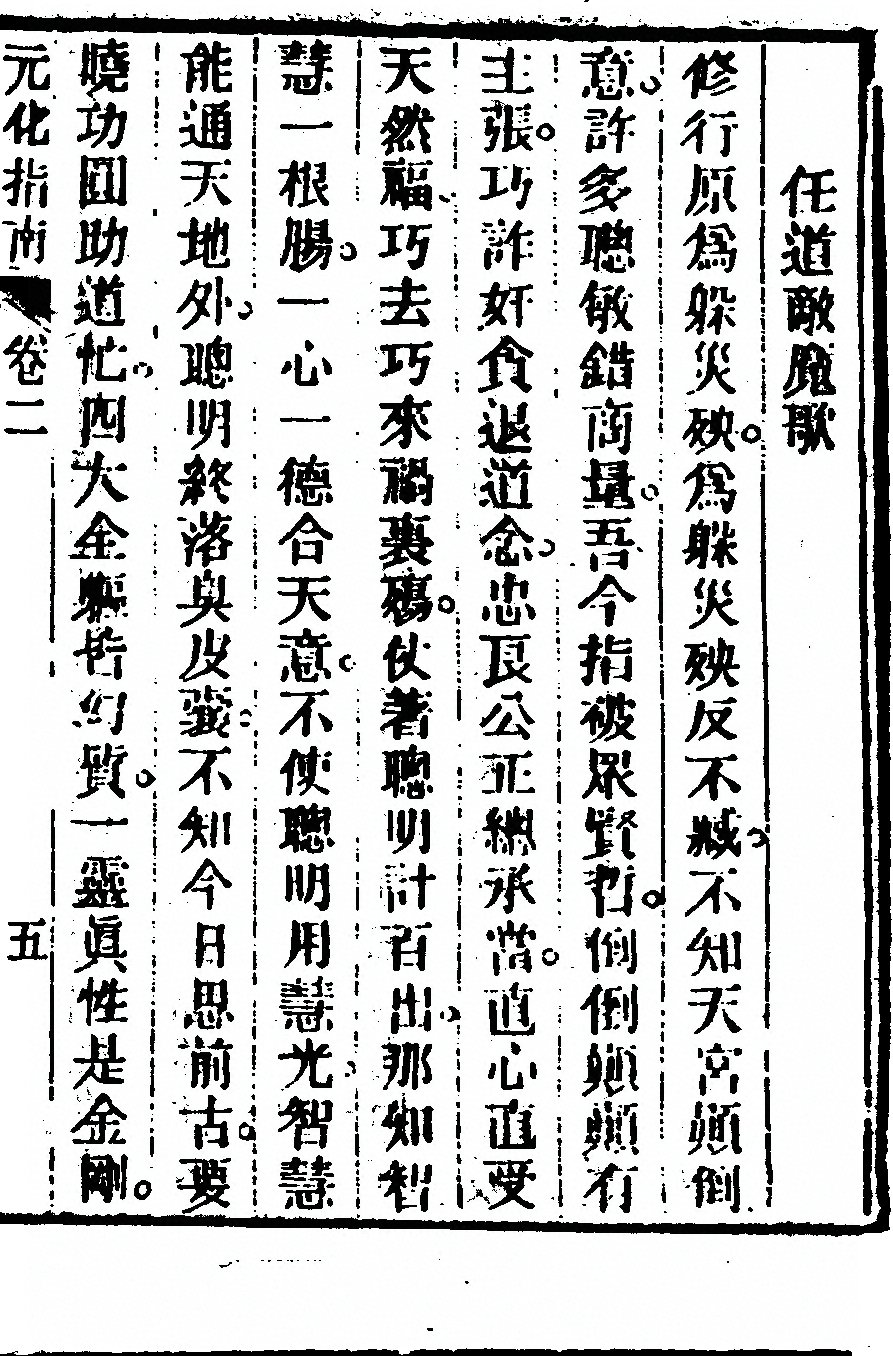 任道敵魔歌
修行原爲躲災殃。爲躲災殃反不臧。不知天宮顛倒
意。許多聰敏錯商量。吾今指破眾賢哲。倒倒顛顛有
主張。巧詐奸貪退道念。忠良公正總承當。直心直受
天然福。巧去巧來禍裏殤。仗著聰明計百出。那知智
慧一根腸。一心一德合天意。不使聰明用慧光。智慧
能通天地外。聰明終落臭皮囊。不知今日思前古。要
曉功圓助道忙。四大全軀皆幻質。一靈眞性是金剛。
元化指南 卷二 五